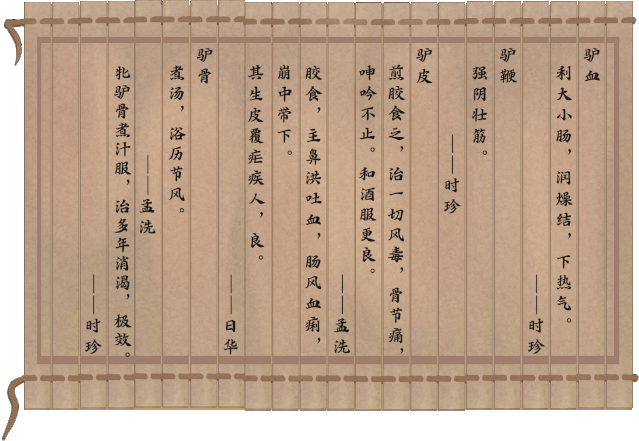 驴血
利大小肠，润燥结，下热气。
——时珍
驴鞭
强阴壮筋。
——时珍
驴皮
煎胶食之，治一切风毒，骨节痛，
呻吟不止。和酒服更良。
——孟洗
胶食，主鼻洪吐血，肠风血痢，
崩中带下。
其生皮覆疟疾人，良。
——日华
驴骨
煮汤，浴历节风。
——孟洗
牝驴骨煮汁服，治多年消渴，极效。
——时珍